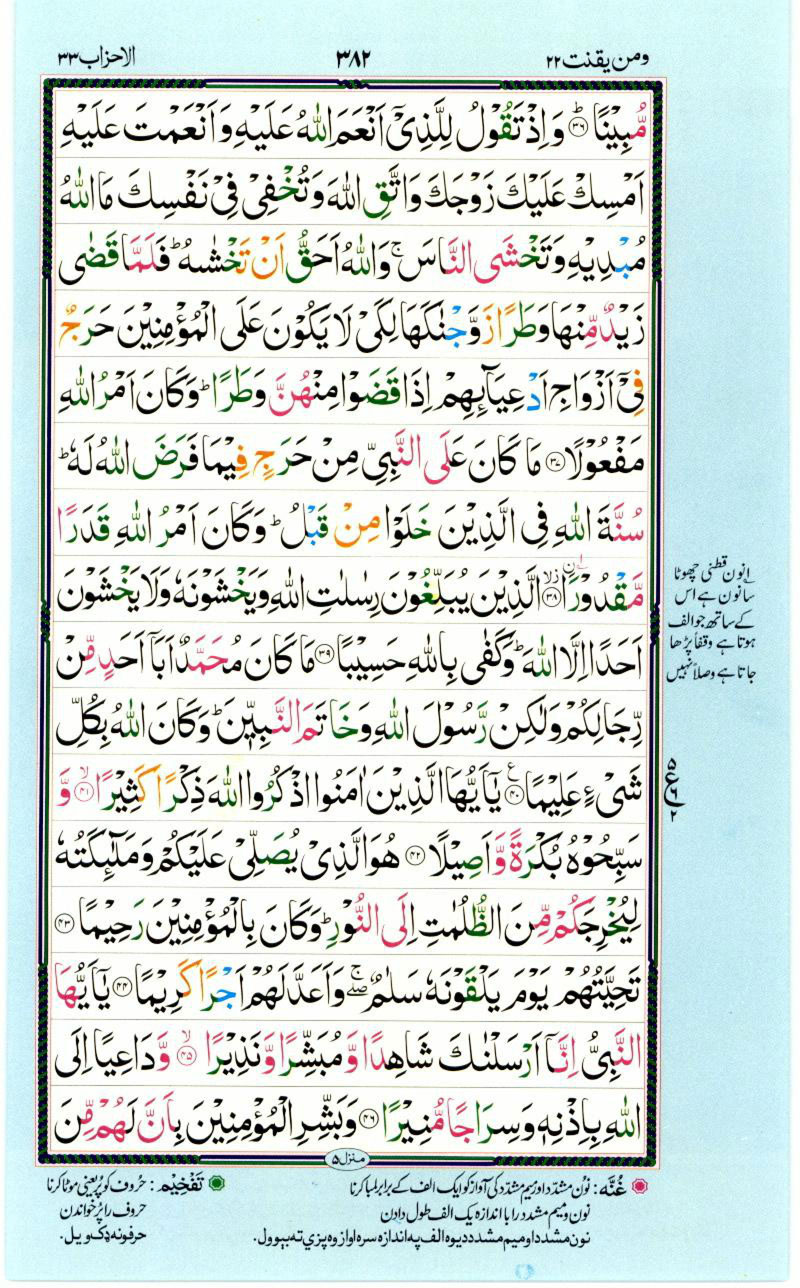 ومن یقنت ۲۲
۳۸۲
الاحزاب ۳۳
مُّبِیْنًا ؕ﴿۳۶﴾ وَ اِذْ تَقُوْلُ لِلَّذِیْۤ اَنْعَمَ اللّٰهُ عَلَیْهِ وَ اَنْعَمْتَ عَلَیْهِ
اَمْسِكْ عَلَیْكَ زَوْجَكَ وَ اتَّقِ اللّٰهَ وَ تُخْفِیْ فِیْ نَفْسِكَ مَا اللّٰهُ
مُبْدِیْهِ وَ تَخْشَی النَّاسَ ۚ وَ اللّٰهُ اَحَقُّ اَنْ تَخْشٰىهُ ؕ فَلَمَّا قَضٰی
زَیْدٌ مِّنْهَا وَطَرًا زَوَّجْنٰكَهَا لِكَیْ لَا یَكُوْنَ عَلَی الْمُؤْمِنِیْنَ حَرَجٌ
فِیْۤ اَزْوَاجِ اَدْعِیَآىِٕهِمْ اِذَا قَضَوْا مِنْهُنَّ وَطَرًا ؕ وَ كَانَ اَمْرُ اللّٰهِ
مَفْعُوْلًا ﴿۳۷﴾ مَا كَانَ عَلَی النَّبِیِّ مِنْ حَرَجٍ فِیْمَا فَرَضَ اللّٰهُ لَهٗ ؕ
سُنَّةَ اللّٰهِ فِی الَّذِیْنَ خَلَوْا مِنْ قَبْلُ ؕ وَ كَانَ اَمْرُ اللّٰهِ قَدَرًا
مَّقْدُوْرَا ﴿۳۸﴾ الَّذِیْنَ یُبَلِّغُوْنَ رِسٰلٰتِ اللّٰهِ وَ یَخْشَوْنَهٗ وَ لَا یَخْشَوْنَ
اَحَدًا اِلَّا اللّٰهَ ؕ وَ كَفٰی بِاللّٰهِ حَسِیْبًا ﴿۳۹﴾ مَا كَانَ مُحَمَّدٌ اَبَاۤ اَحَدٍ مِّنْ
رِّجَالِكُمْ وَ لٰكِنْ رَّسُوْلَ اللّٰهِ وَ خَاتَمَ النَّبِیّٖنَ ؕ وَ كَانَ اللّٰهُ بِكُلِّ
شَیْءٍ عَلِیْمًا ﴿۴۰﴾ یٰۤاَیُّهَا الَّذِیْنَ اٰمَنُوا اذْكُرُوا اللّٰهَ ذِكْرًا كَثِیْرًا ۙ﴿۴۱﴾ وَّ
سَبِّحُوْهُ بُكْرَةً وَّ اَصِیْلًا ﴿۴۲﴾ هُوَ الَّذِیْ یُصَلِّیْ عَلَیْكُمْ وَ مَلٰٓىِٕكَتُهٗ
لِیُخْرِجَكُمْ مِّنَ الظُّلُمٰتِ اِلَی النُّوْرِ ؕ وَ كَانَ بِالْمُؤْمِنِیْنَ رَحِیْمًا ﴿۴۳﴾
تَحِیَّتُهُمْ یَوْمَ یَلْقَوْنَهٗ سَلٰمٌ ۖۚ وَ اَعَدَّ لَهُمْ اَجْرًا كَرِیْمًا ﴿۴۴﴾ یٰۤاَیُّهَا
النَّبِیُّ اِنَّاۤ اَرْسَلْنٰكَ شَاهِدًا وَّ مُبَشِّرًا وَّ نَذِیْرًا ۙ﴿۴۵﴾ وَّ دَاعِیًا اِلَی
اللّٰهِ بِاِذْنِهٖ وَ سِرَاجًا مُّنِیْرًا ﴿۴۶﴾ وَ بَشِّرِ الْمُؤْمِنِیْنَ بِاَنَّ لَهُمْ مِّنَ
انون قطنی چھوٹا
سا نون ہے اس
کے ساتھ جو الف
ہوتا ہے وقفاً پڑھا
جاتا ہے وصلاً نہیں
۵
ع
۶
۲
منزل ۵
غُنَّه: نون مشدد اور میم مشدد کی آواز کو ایک الف کے برابر لمبا کرنا
نون و میم مشدد را با اندازه یک الف طول دادن
نون مشدد او میم مشدد دیوه الف په اندازه سره اواز وه پزې ته بېوول.
تَفْخِیْم: حروف کو پُر یعنی موٹا کرنا
حروف را پر خواندن
حرفونه ډک ویل.